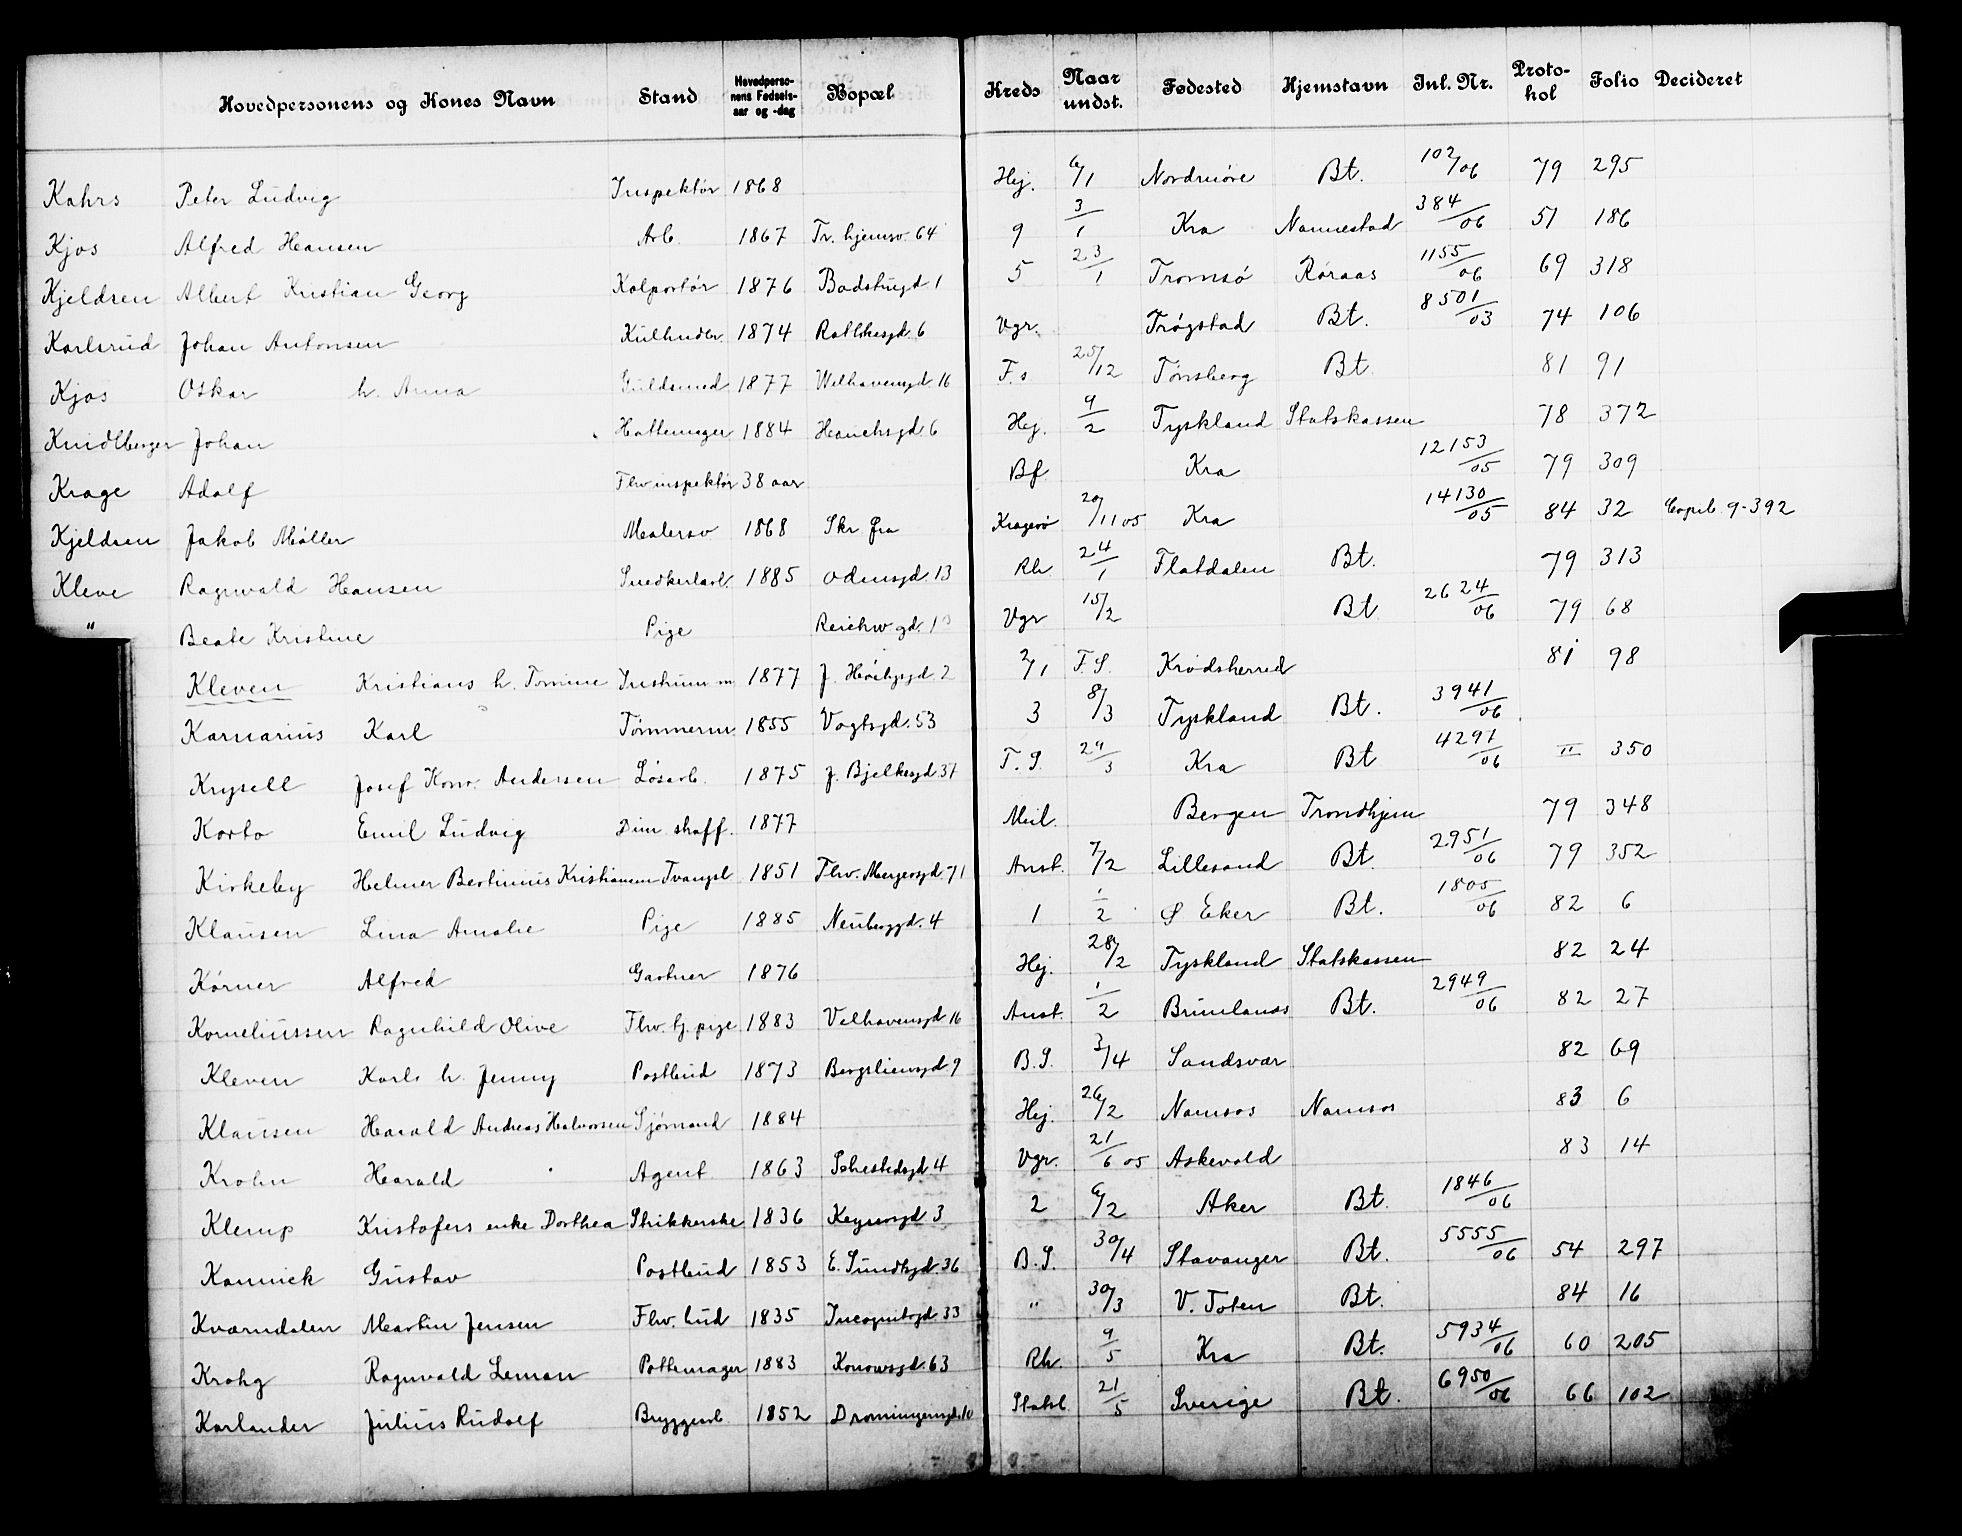 Hovedpersonens og Kones Navn Stand Hovedperso-nens Fødsels-aar og -dag Bopæl Kreds Naar undst. Fødested Hjemstavn Inl. Nr. Proto-kol Folio Decideret
Kahrs Peter Ludvig Inspektør 1868 Hej. 6/1 Nordmöre Bt. 102/06 79 295
Kjos Alfred Hansen Arb. 1867 Tr. hjemsv. 64 9 3/1 Kra Nannestad 384/06 51 186
Kjeldsen Albert Kristian Georg Kolportör 1876 Badstugd 1 5 23/1 Tromsö Røraas 1155/06 69 318
Karlsrud Johan Antonsen Kulhndlr. 1874 Rathkesgd. 6 Vgr. Trøgstad Bt. 8501/03 74 106
Kjos Oskar h. Anna Guldsmed 1877 Welhavensgd 16 F.s 25/12 Tønsberg Bt. 81 91
Kindlberger Johan Hattemager 1884 Hauchsgd. 6 Hej. 9/2 Tyskland Statskassen 78 372
Krage Adolf Fhv inspektør 38 aar Bf. Kra 12153/05 79 309
Kjeldsen Jakob Møller Malersv 1868 Skr. fra Kragerø 20/11 05 Kra 14130/05 84 32 Copib. 9-392
Kleve Ragnvald Hansen Snedkerlærl. 1885 Odensgd. 13 Rh. 24/1 Flatdalen Bt. 79 313
" Beate Kristine Pige Reichw gd. 1 Vgr 15/2 Bt 2624/06 79 68
Kleven Kristians h. Tomine Instrum m. 1877 J. Höibysgd 2 2/1 F.S. Krødsherred 81 98
Karnarius Karl Tømmerm. 1855 Vogtsgd. 53 3 8/3 Tyskland Bt. 3941/06
Krysell Josef Konr. Andersen Løsarb. 1875 J. Bjelkesgd. 37 F.S. 29/3 Kra Bt 4291/06 II 350
Korto Emil Ludvig Dim skaff. 1877 Meil. Bergen Trondhjem 79 348
Kirkeby Helmer Bertinius Kristiansen Tvangsl 1851 Fhv. Meyersgd. 71 Anst. 7/2 Lillesand Bt. 2951/06 79 352
Klausen Lina Amalie Pige 1885 Neuberggd. 4 1 1/2 Ø Eker Bt. 1805/06 82 6
Kørner Alfred Gartner 1876 Hej. 28/2 Tyskland Statskassen 82 24
Korneliussen Ragnhild Olive Fhv. tj. pige 1883 Velhavensgd 16 Anst. 1/2 Brunlanæs Bt. 2949/06 82 27
Kleven Karls h. Jenny Postbud 1873 Bergsliensgd. 9 B.S. 3/4 Sandsvær 82 69
Klausen Harald Andreas Halvorsen Sjømand 1884 Hej. 26/2 Namsos Namsos 83 6
Krohn Harald Agent 1863 Sehestedsgd. 4 Vgr. 21/6 05 Askevold 83 14
Klemp Kristofers enke Dorthea Strikkerske 1836 Keysersgd 3 2 6/2 Aker Bt. 1846/06
Kannick Gustav Postbud 1853 E. Sundtsgd. 36 B.S. 30/4 Stavanger Bt. 5555/06 54 297
Kværndalen Martin Jensen Fhv. bud 1835 Incognitogd 33 " 30/3 V. Toten Bt. 84 16
Krohg Ragnvald Leman Pottemager 1883 Konowsgd. 63 Rh 9/5 Kra Bt. 5934/06 60 205
Karlander Julius Rudolf Bryggearb. 1852 Dronningensgd. 10 Statsl 21/5 Sverige Bt. 6950/06 66 102